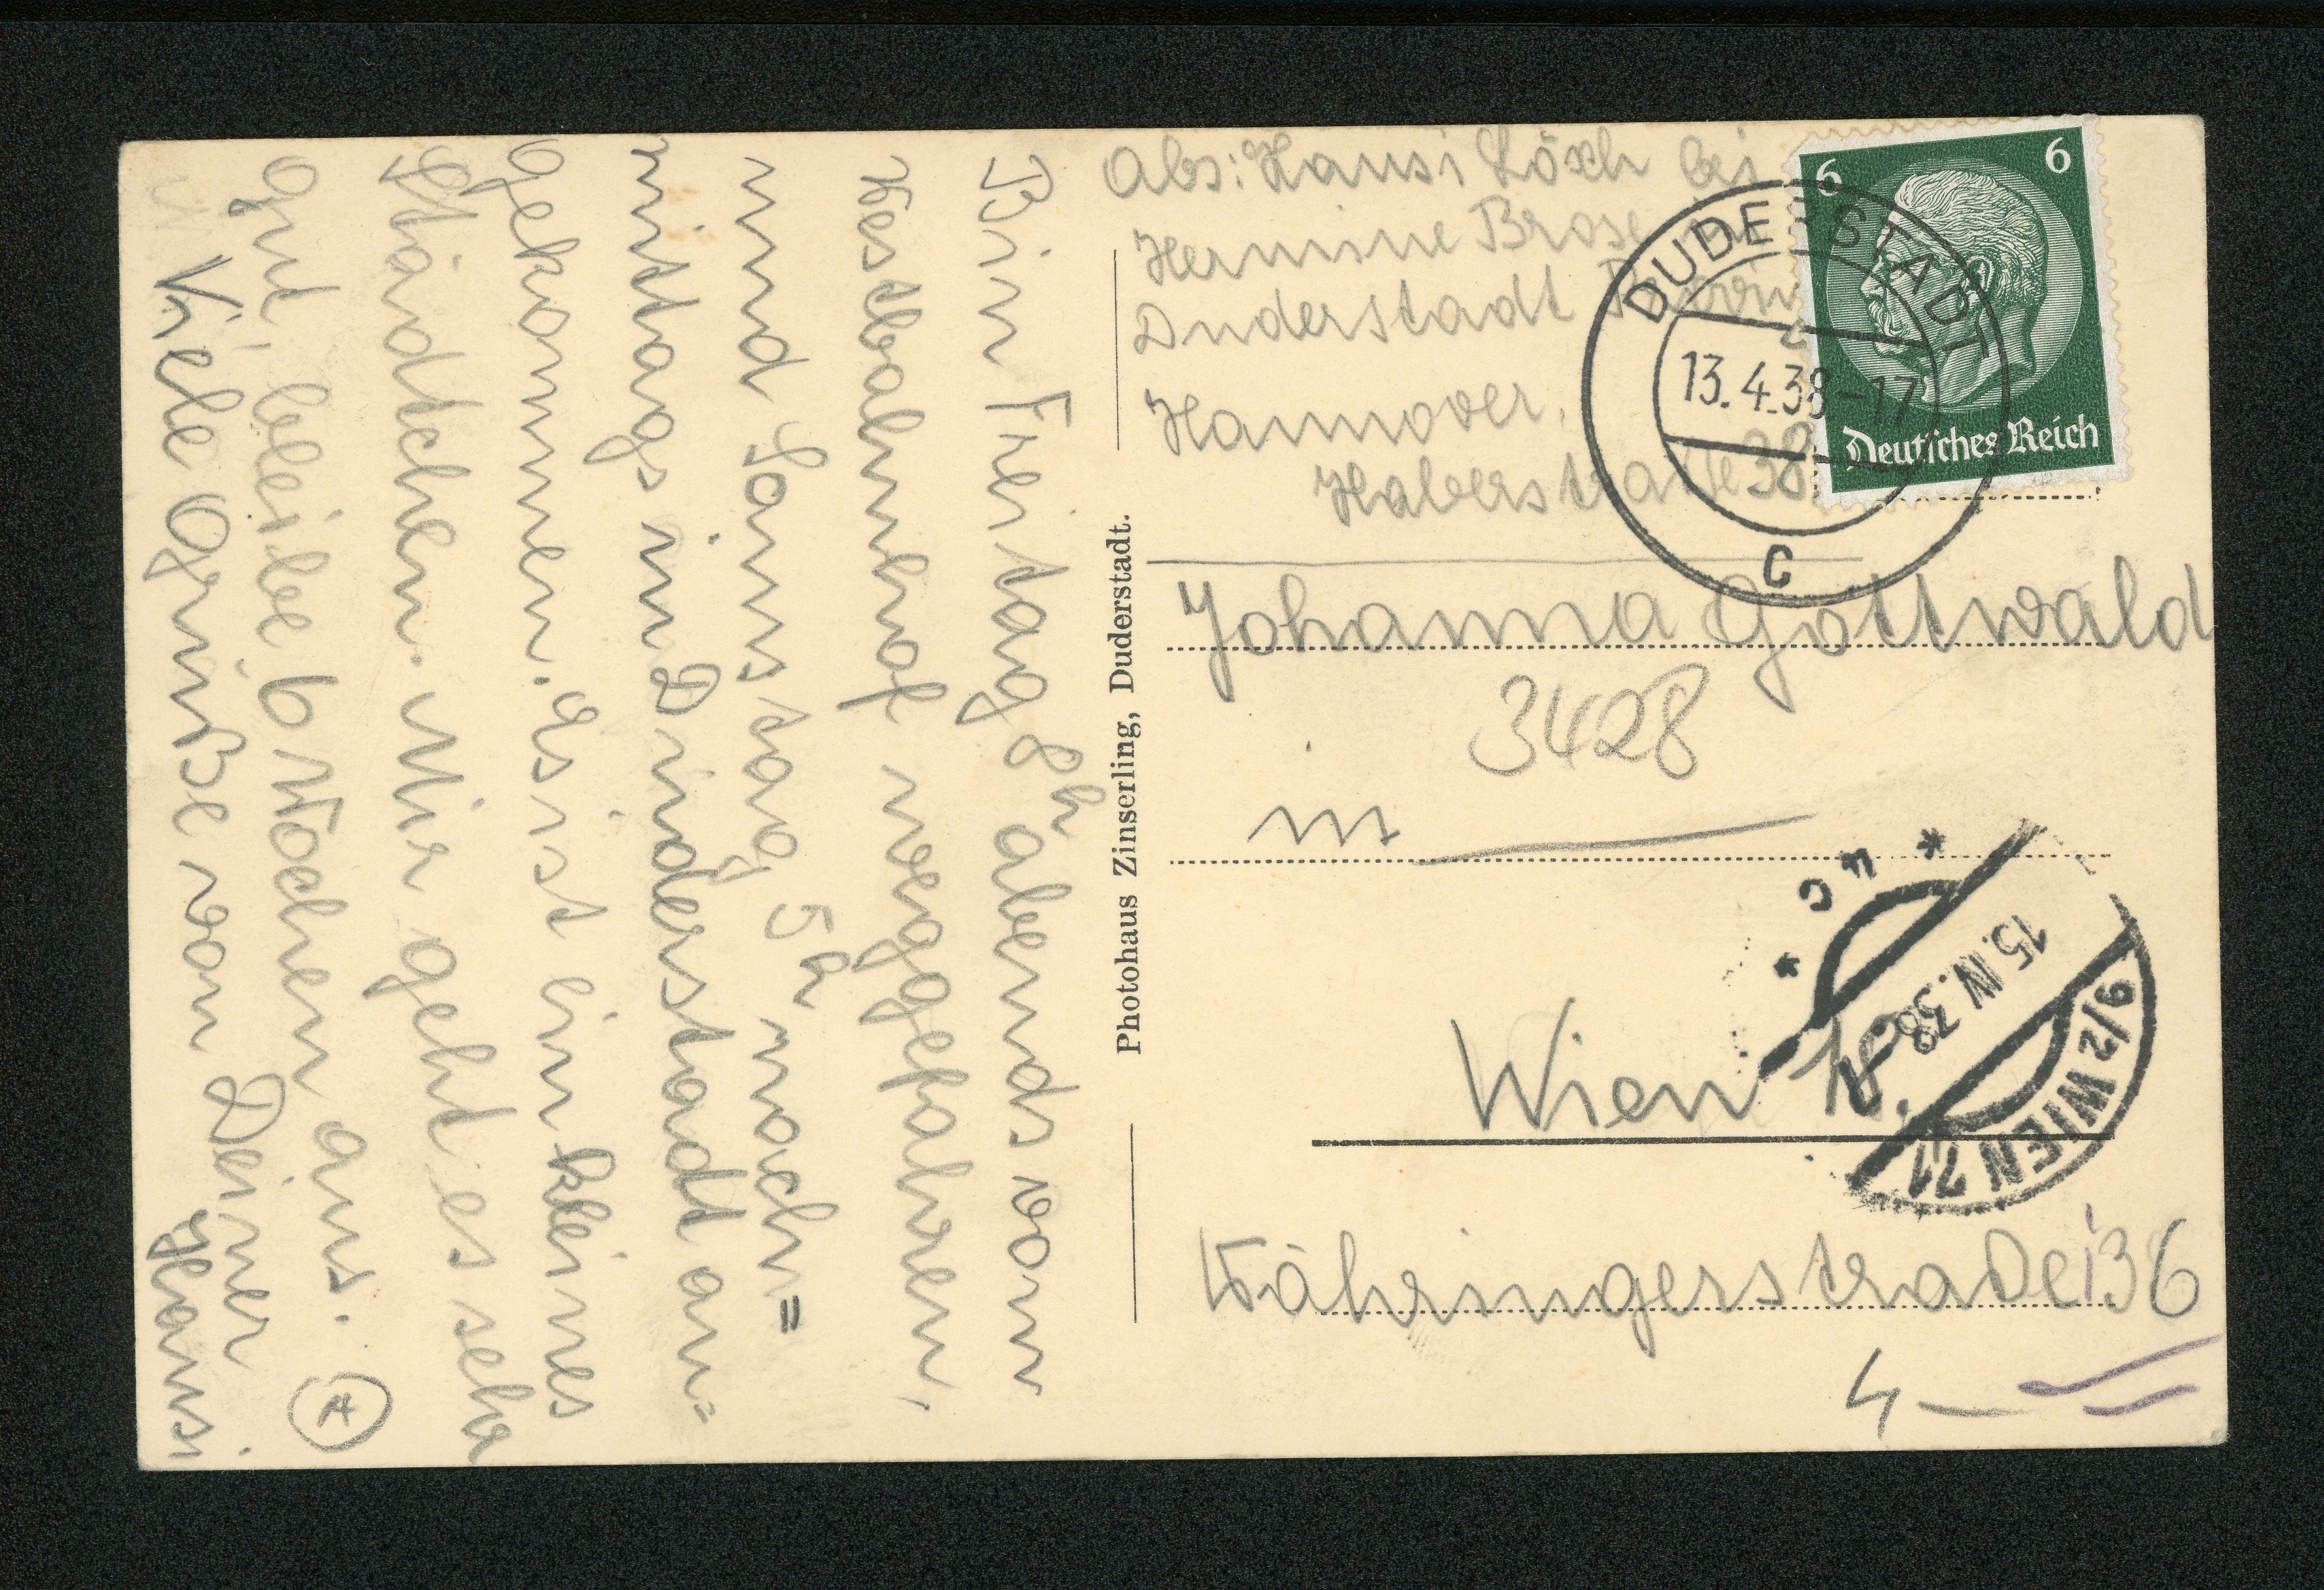 Abs: Hansi Lösch bei
Hermine Brose
Duderstadt
Hannover.
Haberstraße 38
6 6
Deutsches Reich
DUDERSTADT
13.4.38-17
C
Johanna Gottwald
3428
in
Wien
15.IV.38
9/2 WIEN 71
Währingerstraße 36
4
Photohaus Zinserling, Duderstadt.
Bin Freitag 8h abends vom
Westbahnhof weggefahren,
und Samstag 5h nach=
mittags in Duderstadt an=
gekommen. Es ist ein kleines
Städtchen. Mir geht es sehr
gut, bleibe 6 Wochen aus.
Viele Grüße von Deiner
Hansi